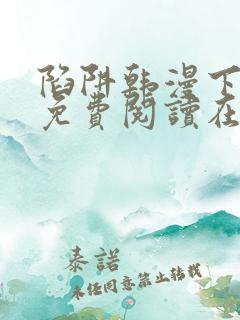 陷阱韩漫下
免費閱讀在
泰諾
未经同意禁止转载